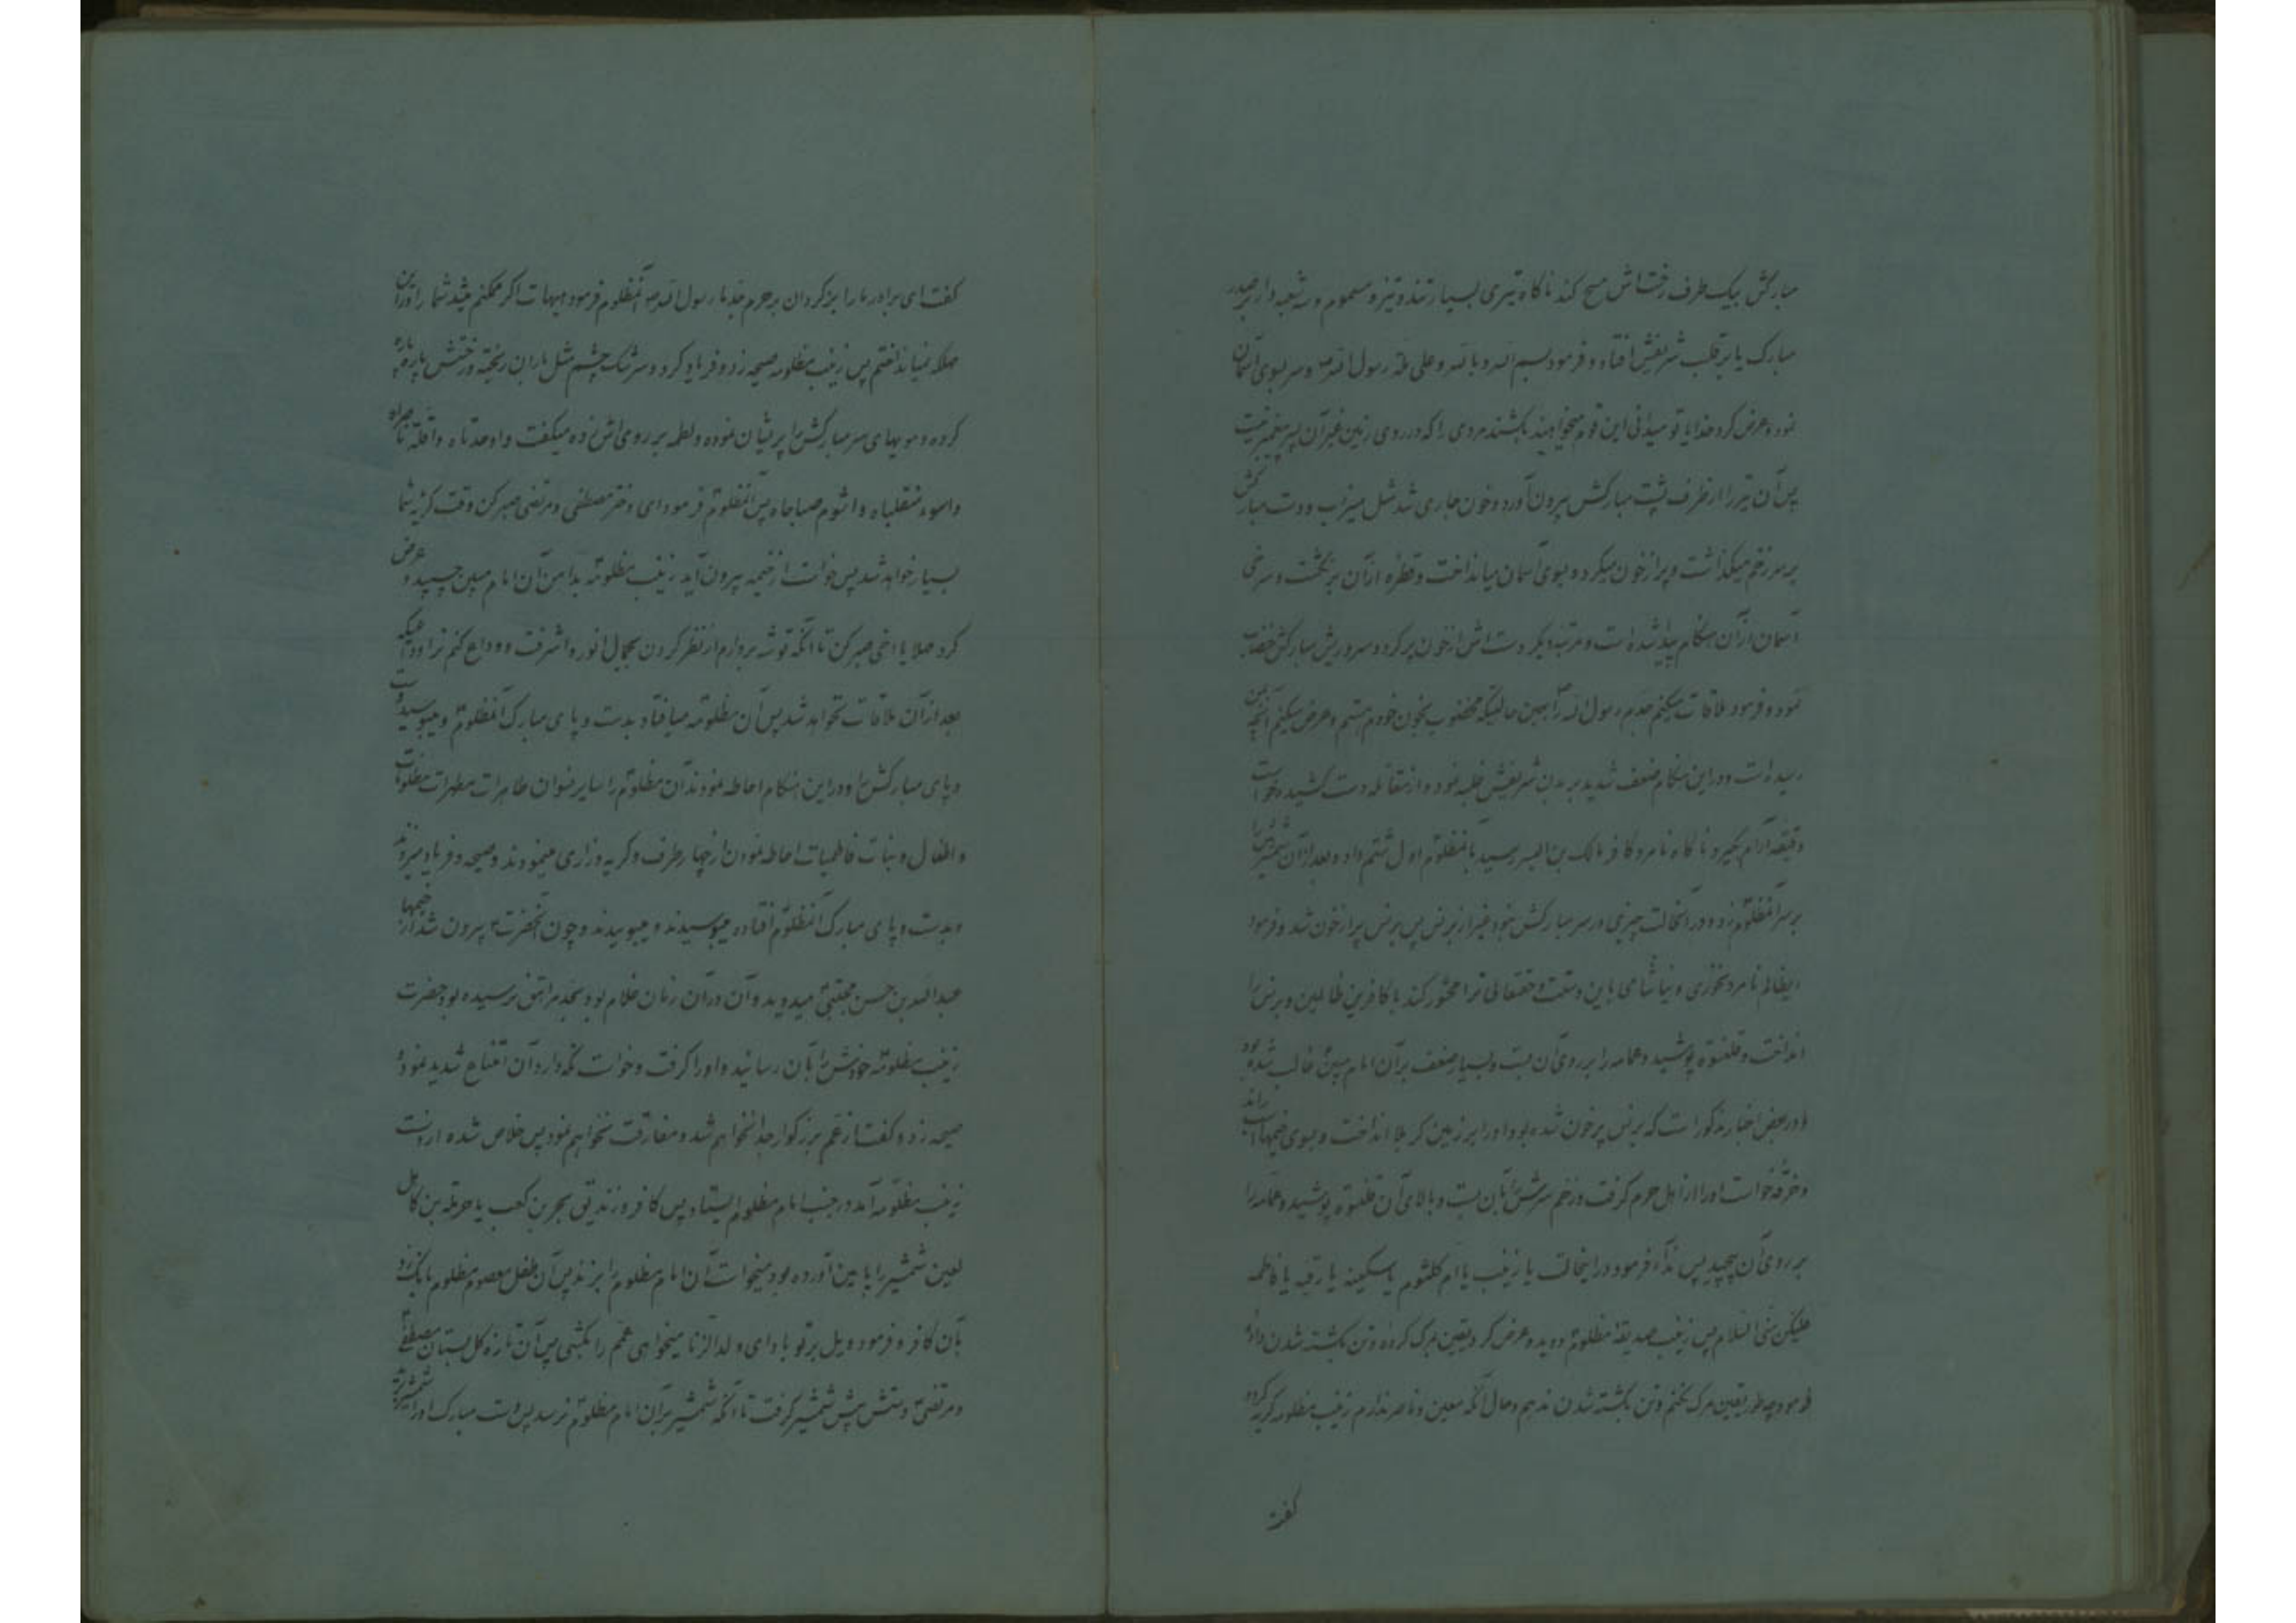 مبارکش بیک طرف رختهاش مسح کند ناکاه تیری بسیار تند و تیز و مسموم و سه شعبه دار بر صدر
مبارک یا بر قلب شریفش افتاد و فرمود بسم الله و بالله و علی ملة رسول الله ص و سر بسوی آسمان
نمود و عرض کرد خدایا تو میدانی این قوم میخواهند بکشند مردی را که در روی زمین غیر آن پسر پیغمبر نیست
پس آن تیر را از طرف پشت مبارکش بیرون آورد و خون جاری شد مثل میزاب و دست مبارکش
بر سر زخم میکذاشت و پر از خون میکرد و بسوی آسمان میانداخت و قطره از آن برنکشت و سرخی
آسمان از آن هنکام پیدا شده است و مرتبه دیکر دست اش از خون پر کرد و سر و ریش مبارکش خضاب
نمود و فرمود ملاقات میکنم جدم رسول الله ص را بهمین حالتیکه مخضوب بخون خودم هستم و عرض میکنم آنچه بمن
رسیده است و در این هنکام ضعف شدید بر بدن شریفش غلبه نمود و از مقاتله دست کشید و خواست
دقیقه آرام بکیرد ناکاه نامرد کافر مالک بن الیسر رسید بآنمظلوم اول شتم داد و بعد از آن شمشیر را
بر سر آنمظلوم زد و در آنحالت چیزی در سر مبارکش نبود غیر از برنس پس برنس پر از خون شد و فرمود
ایظالم نامرد نخوری و نیاشامی باین دستت و حقتعالی ترا محشور کند با کافرین ظالمین و برنس را
انداخت و قلنسوه پوشید و عمامه را بر روی آن بست و بسیار ضعف بر آن امام مبین غالب شده بود
و در بعض اخبار مذکور است که برنس پر خون شده بود او را بر زمین کربلا انداخت و بسوی خیمها اسب راند
و خرقه خواست او را از اهل حرم کرفت و زخم سرش را بآن بست و بالای آن قلنسوه پوشید و عمامه را
بر روی آن پیچید پس نداء فرمود در اینحالت یا زینب یا ام کلثوم یا سکینه یا رقیه یا فاطمه
علیکن منی السلام پس زینب صدیقه مظلومه دوید و عرض کرد یقین مرک کرده و تن بکشته شدن داده
فرمود چه طور یقین مرک نکنم و تن بکشته شدن ندهم و حال آنکه معین و ناصر ندارم زینب مظلومه کریه کرده
کفت
کفت ای برادر ما را برکردان بر حرم جد ما رسول الله ص آنمظلوم فرمود هیهات اکر ممکنم میشد شما را در این
مهلکه نمیانداختم پس زینب مظلومه صیحه زد و فریاد کرد و سرشک چشم مثل باران ریخته و رختش پاره پاره
کرده و مویهای سر مبارکش را پریشان نموده و لطمه بر روی اش زده میکفت وا وحدتاه وا قلة ناصراه
وا سوء منقلباه وا شوم صباحاه پس آنمظلوم فرمود ای دختر مصطفی و مرتضی صبر کن وقت کریه شما
بسیار خواهد شد پس خواست از خیمه بیرون آید زینب مظلومه بدامن آن امام مبین چسپید و عرض
کرد مهلا یا اخی صبر کن تا آنکه توشه بردارم از نظر کردن بجمال انور و اشرفت و وداع کنم ترا وداعیکه
بعد از آن ملاقات نخواهد شد پس آن مظلومه میافتاد بدست و پای مبارک آنمظلوم و میبوسید دست
و پای مبارکش را و در این هنکام احاطه نمودند آن مظلوم را سایر نسوان طاهرات مطهرات مظلومات
و اطفال و بنات فاطمیات احاطه نمودن از چهار طرف و کریه و زاری مینمودند و صیحه و فریاد میزدند
و بدست و پای مبارک آنمظلوم افتاده میبوسیدند و میبوییدند و چون آنحضرت بیرون شد از خیمها
عبد الله بن حسن مجتبی میدوید و آن در آن زمان غلام بود بحد مراهق نرسیده بود حضرت
زینب مظلومه خودش را بآن رسانید و او را کرفت و خواست نکه دارد آن امتناع شدید نمود و
صیحه زد و کفت از عم بزرکوار جدا نخواهم شد و مفارقت نخواهم نمود پس خلاص شده از دست
زینب مظلومه آمد در جنب امام مظلوم ایستاد پس کافر و زندیق بحر بن کعب یا حرملة بن کاهل
لعین شمشیر را پایین آورده بود میخواست آن امام مظلوم را بزند پس آن طفل معصوم مظلوم بانک زد
بآن کافر و فرمود ویل بر تو باد ای ولد الزنا میخواهی عمم را بکشی پس آن تازه کل بستان مصطفی
و مرتضی دستش پیش شمشیر کرفت تا آنکه شمشیر بر آن امام مظلوم نرسد پس دست مبارک او را شمشیر